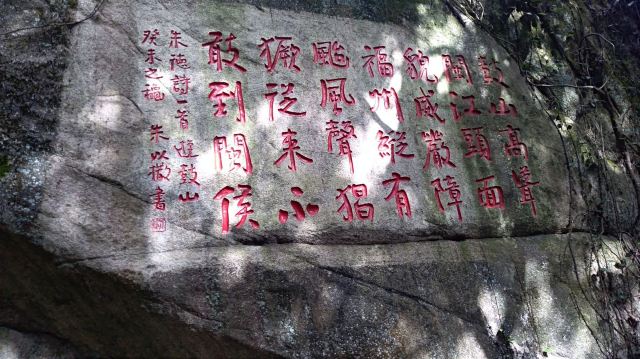 鼓山高聳
閩江頭面
貌威嚴障
福州縱有
颱風聲猖
獗從来不
敢到閩侯
朱德詩一首遊鼓山
癸未之穐 朱以撒書